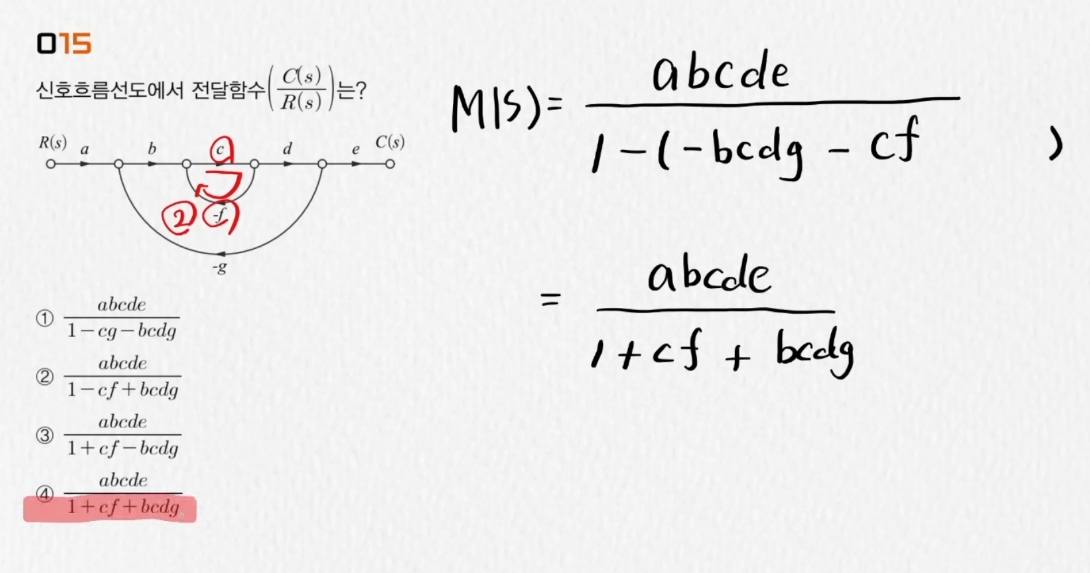 015
신호흐름선도에서 전달함수(C(s)/R(s))는?
R(s) a b c d e C(s)
② -f
-g
① abcde / 1-cg-bcdg
② abcde / 1-cf+bcdg
③ abcde / 1+cf-bcdg
④ abcde / 1+cf+bcdg
M(s)= abcde / 1-(-bcdg - cf )
= abcde / 1+cf + bcdg